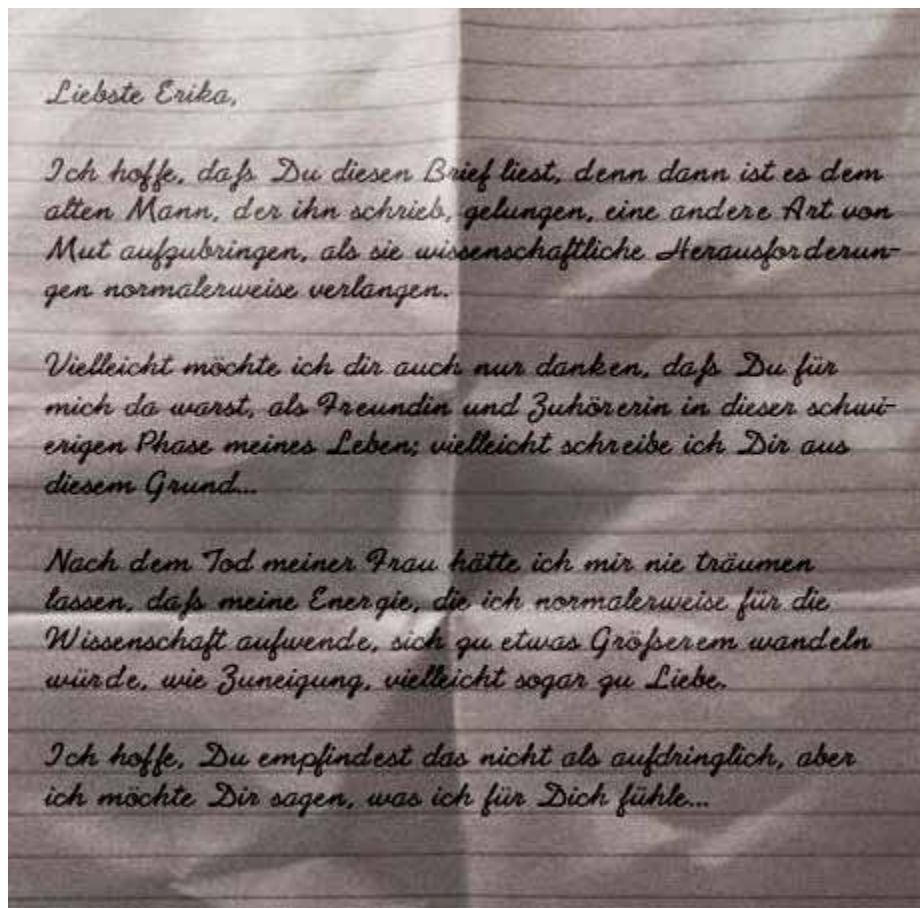 Liebste Erika,
Ich hoffe, daß Du diesen Brief liest, denn dann ist es dem
alten Mann, der ihn schrieb, gelungen, eine andere Art von
Mut aufzubringen, als sie wissenschaftliche Herausforderun-
gen normalerweise verlangen.
Vielleicht möchte ich dir auch nur danken, daß Du für
mich da warst, als Freundin und Zuhörerin in dieser schwi-
erigen Phase meines Leben; vielleicht schreibe ich Dir aus
diesem Grund...
Nach dem Tod meiner Frau hätte ich mir nie träumen
lassen, daß meine Energie, die ich normalerweise für die
Wissenschaft aufwende, sich zu etwas Größerem wandeln
würde, wie Zuneigung, vielleicht sogar zu Liebe.
Ich hoffe, Du empfindest das nicht als aufdringlich, aber
ich möchte Dir sagen, was ich für Dich fühle...